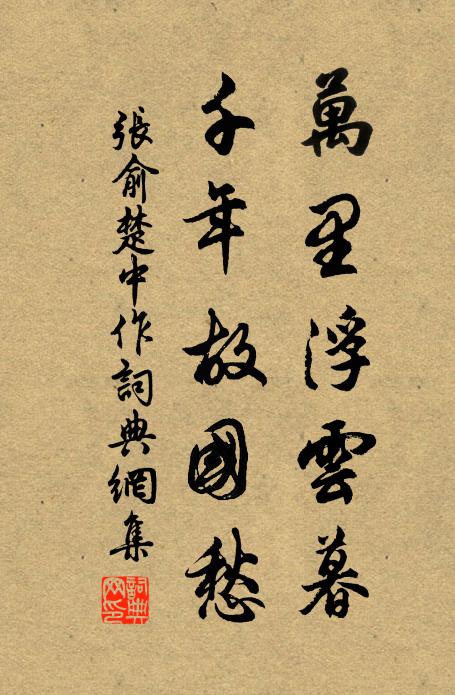 萬里浮雲暮
千年故國愁
張俞楚中作詞典網集
詞典網印